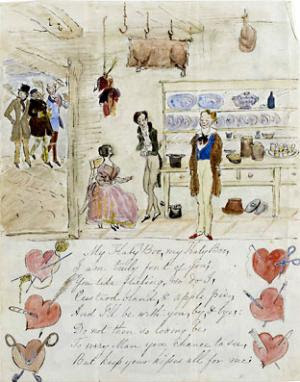 My Katy Boo, my Katy Boo,
I am truly fond of you,
You like
Custard, and & apple pie,
And I'll be with you by & bye:
Do not then so loving be,
To every Man you chance to see,
But keep your kisses all for me!